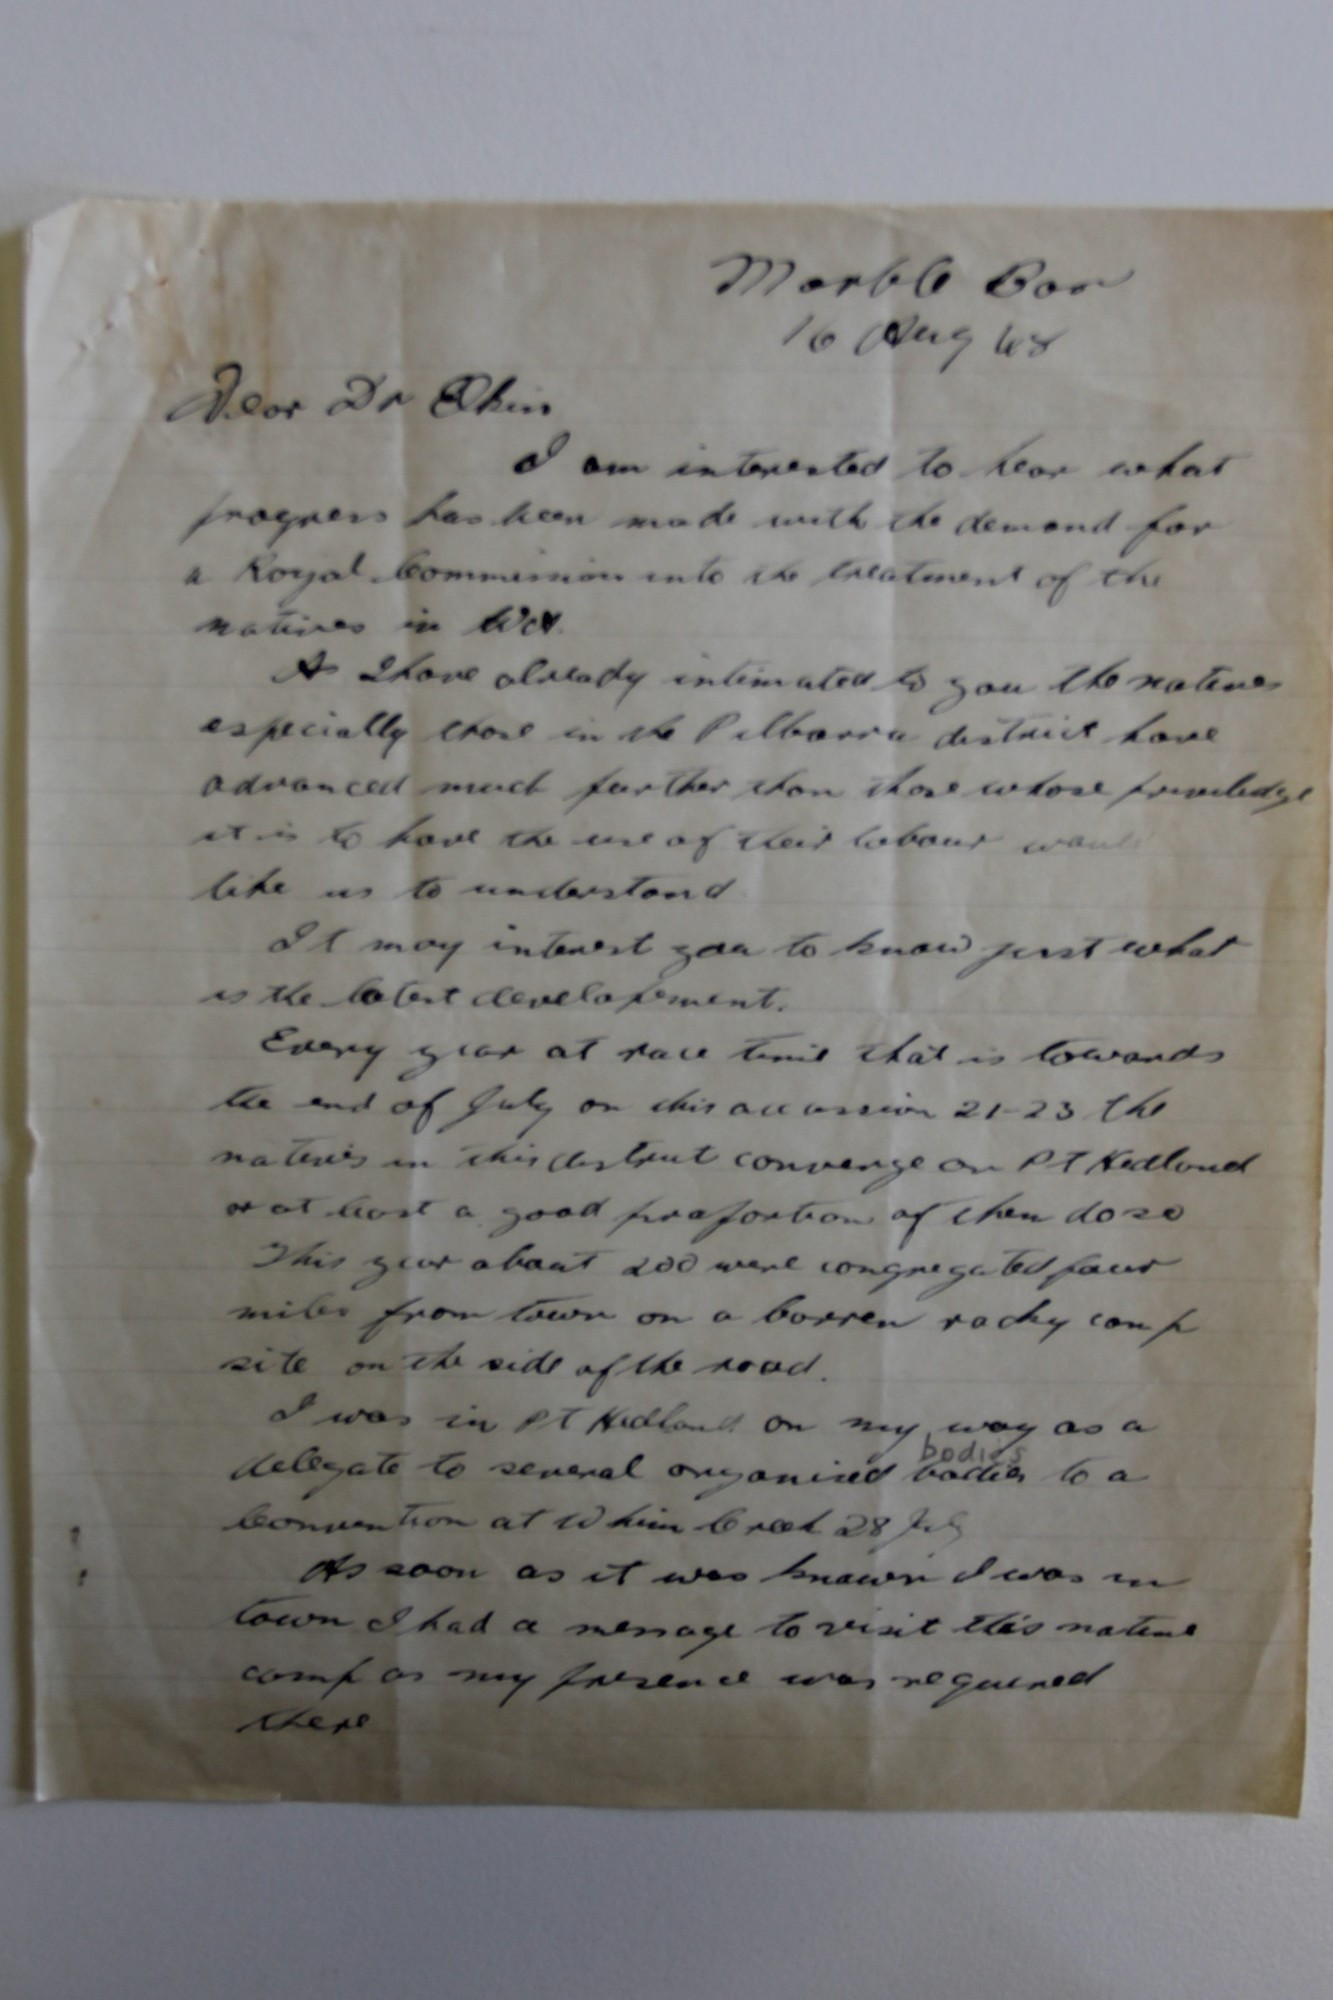 Marble Bar
16 Aug 48
Dear Dr Elkin
I am interested to hear what
progress has been made with the demand for
a Royal Commission into the treatment of the
natives in WA.
As I have already intimated to you the natives
especially those in the Pilbarra district have
advanced much further than those whose priveledge
it is to have the use of their labour would
like us to understand
It may interest you to know just what
is the latest developement.
Every year at race time that is towards
the end of July on this occassion 21-23 the
natives in this district converge on Pt Hedland
or at least a good proportion of them do so
This year about 200 were congregated four
miles from town on a barren rocky camp
site on the side of the road.
I was in Pt Hedland on my way as a
bodies
delegate to several organised bodies to a
Convention at Whim Creek 28 July
As soon as it was known I was in
town I had a message to visit this native
camp as my presence was required
there